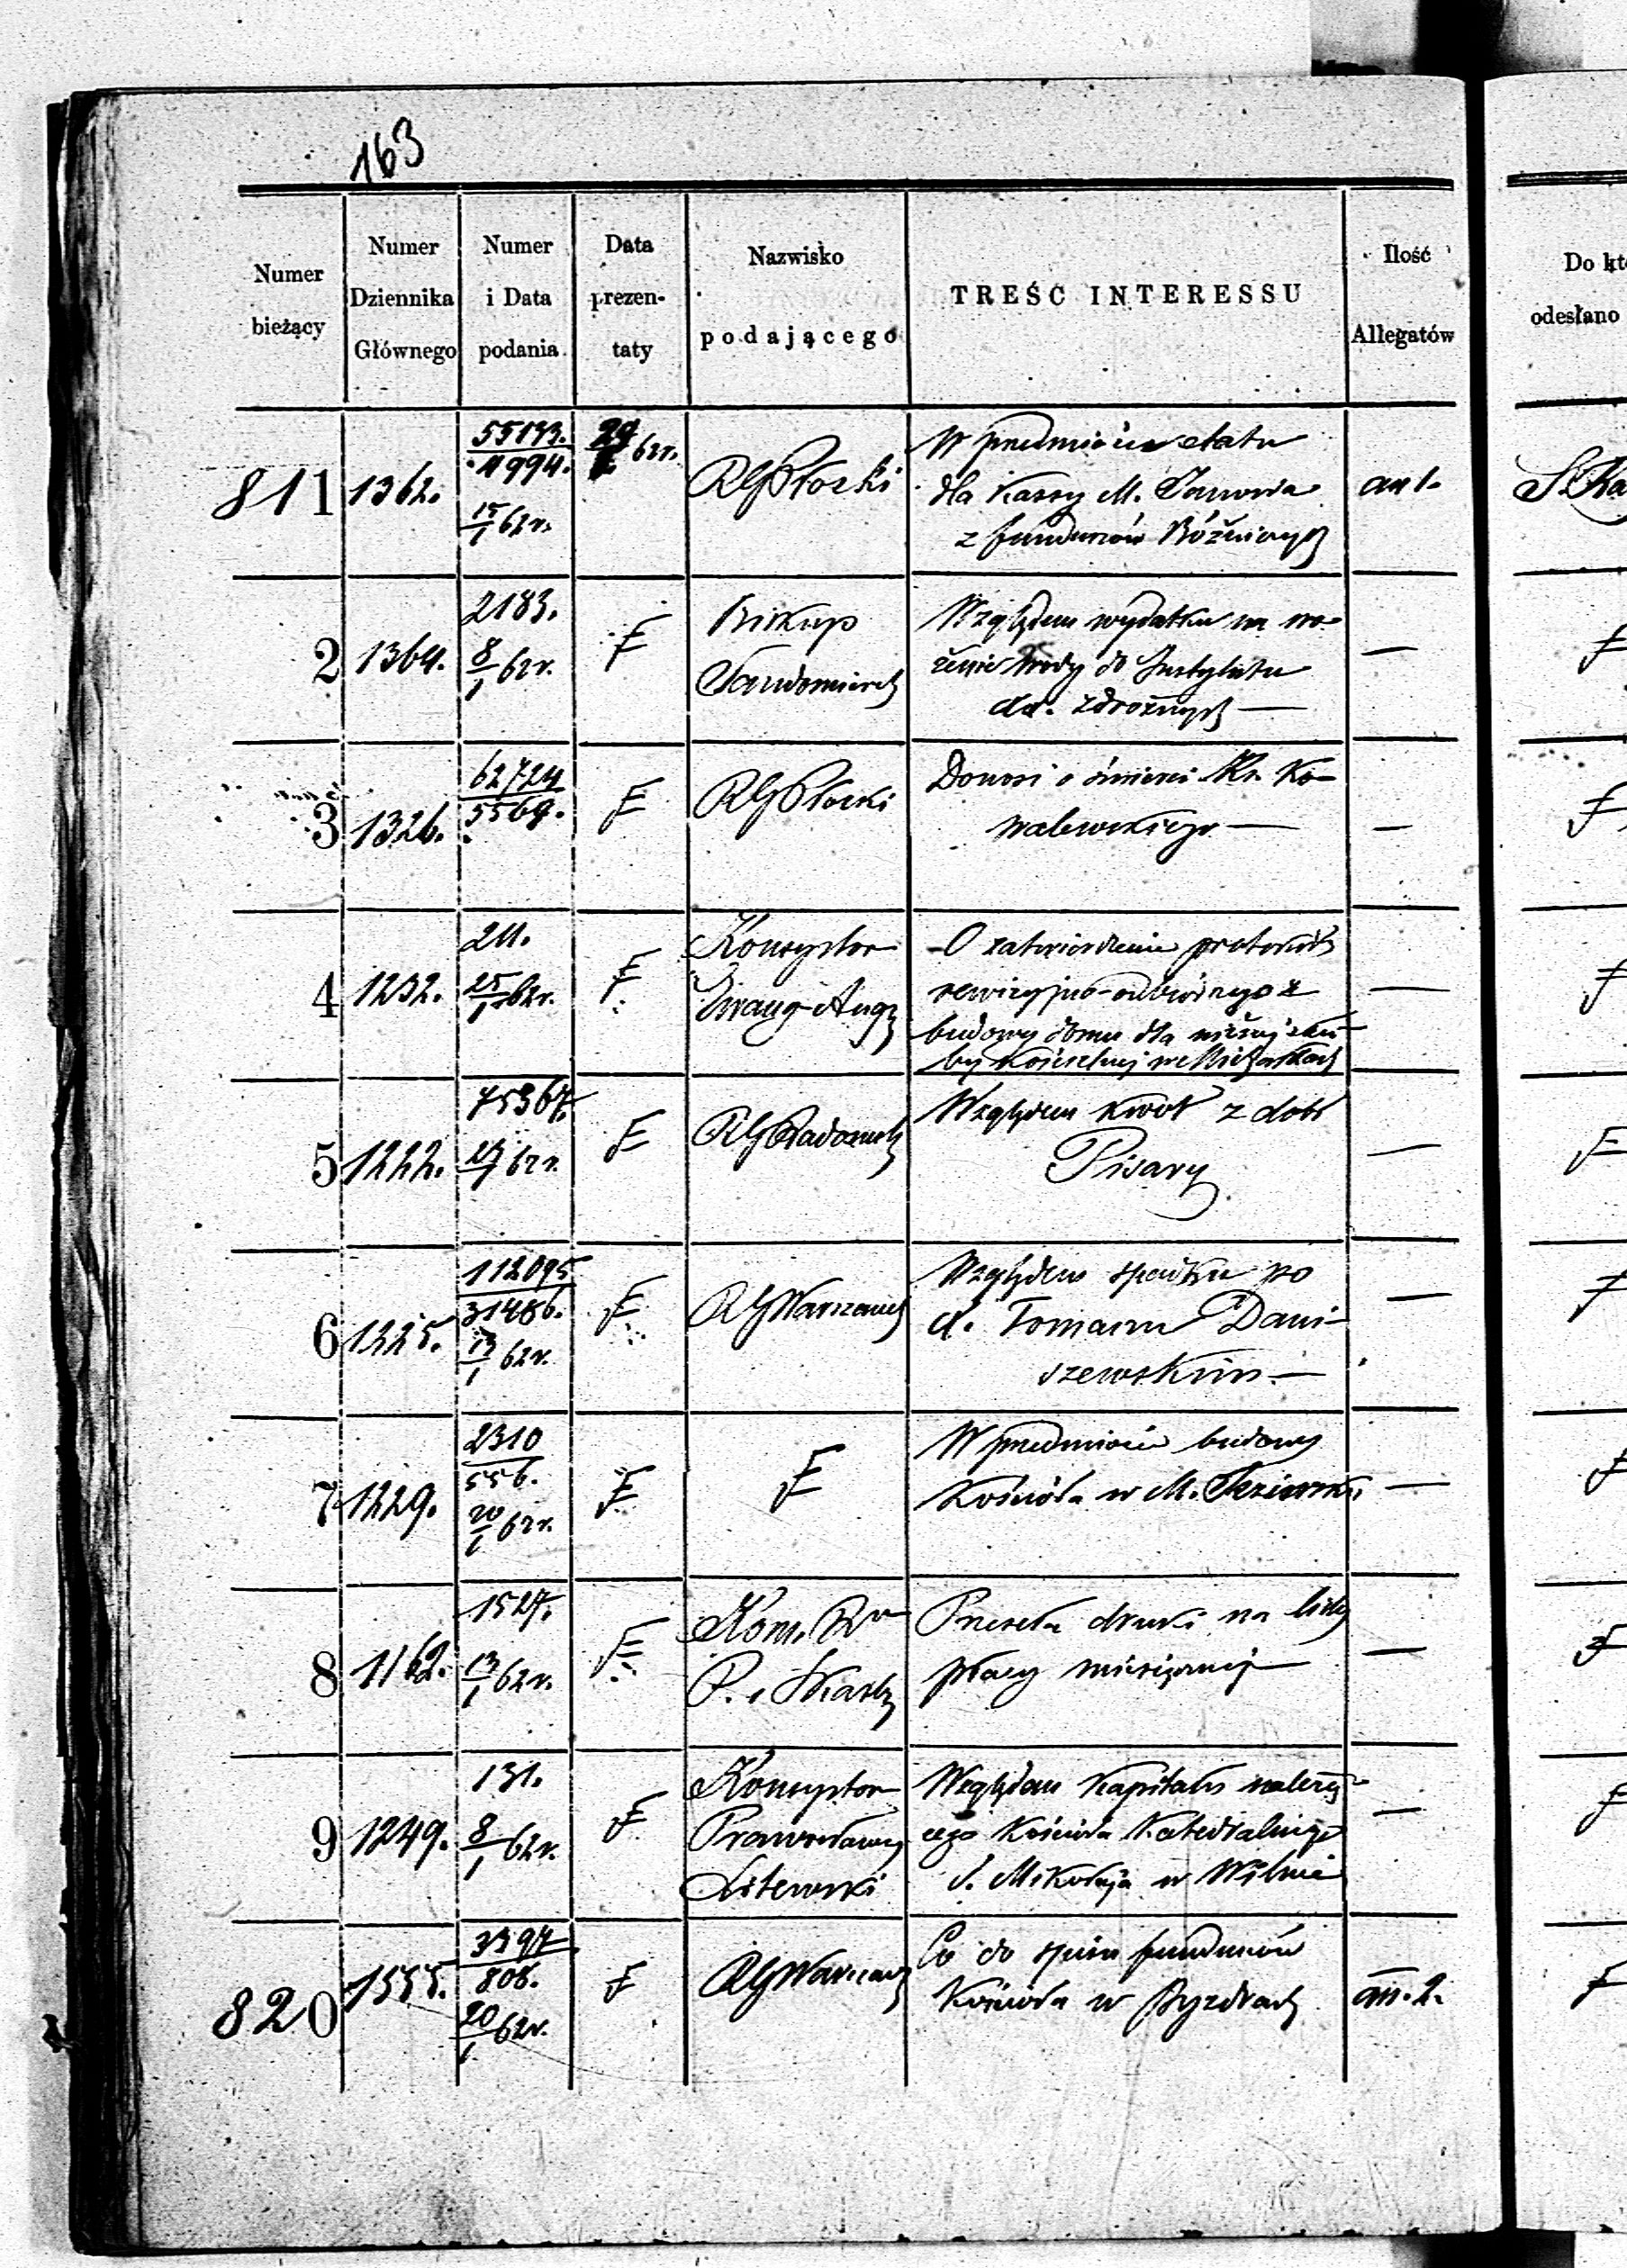 163
Numer bieżący
Numer Dziennika Głównego
Numer i Data podania
Data prezen- taty
Nazwisko podającego
TREŚĆ INTERESSU
Ilość Allegatów
Do kt
odesłano
811 1362. 55133. / 4994. 15/1 62 r. 29/1 62 r. RGPłocki W przedmiocie etatu an 1.
dla Kassy M. Janowa
z funduszów Bóżniczych
2 1364. 2183. 8/1 62 r. F Biskup Względem wydatku na no-
Sandomiersk szenie wody do Instytutu —
dd. zdrożnych —
3 1326. 62724 / 5569. F RGPłocki Donosi o śmierci Kr. Ko-
walewskiego — —
4 1232. 211. 25/1 62 r. F Konsystor O zatwierdzenie protokółu
Ewang-Augs rewizyjno-odbiorczego z —
budowy domu dla niższej słu-
by kościelnej w
5 1222. 75367. 27/1 62 r. F RGRadomsk Względem kwot z dóbr —
Pisary
6 1225. 112095 / 31486. 13/1 62 r. F RGWarszawsk Względem spadku po —
d. Tomaszu Dani-
szewskim. —
7 1229. 2310 / 556. 20/1 62 r. F F W przedmiocie budowy
Kościoła w M. Jeziorna —
8 1162. 1527. 13/1 62 r. F Kom. Rw Przesyła druki na listy
P. i Skarb płacy miesięcznej —
9 1249. 131. 8/1 62 r. F Konsystor Względem Kapitału należą-
Prawosławny cego Kościoła Katedralnego —
Litewski S. Mikołaja w Wilnie
820 1555. 3397 / 808. 20/1 62 r. F RGWarszaw Co do spisu funduszów
Kościoła w Pyzdrach an. 2.